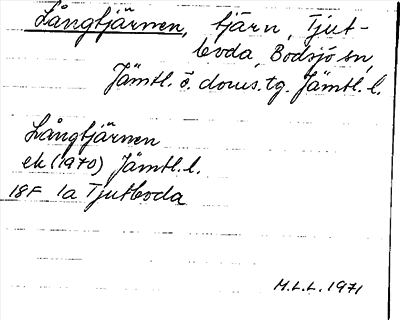 Långtjärnen, tjärn, Tjut-
boda, Bodsjö sn,
Jämtl. ö. doms.tg. Jämtl.l.
Långtjärnen
ek (1970) Jämtl.l.
18F 1a Tjutboda
M.L.L. 1971